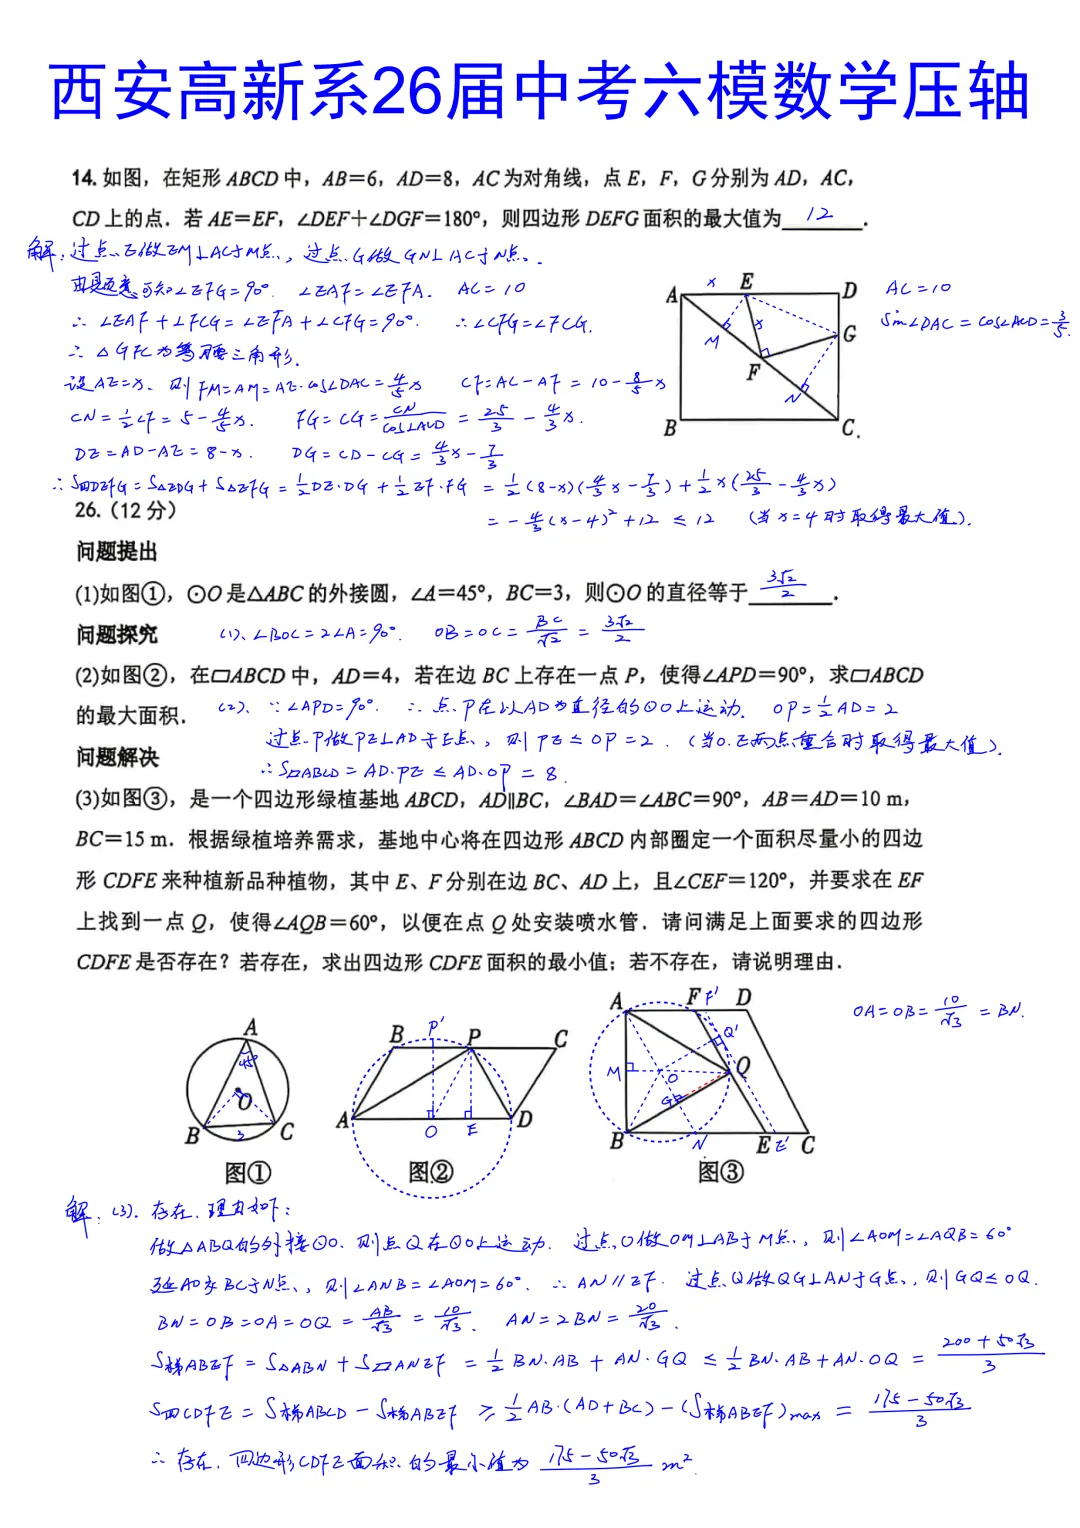 西安高新系26届中考六模数学压轴
14. 如图，在矩形 ABCD 中，AB=6，AD=8，AC 为对角线，点 E，F，G 分别为 AD，AC，
CD 上的点．若 AE=EF，∠DEF+∠DGF=180°，则四边形 DEFG 面积的最大值为 12 ．
解：过点E做EM⊥AC于M点，过点G做GN⊥AC于N点．
由题意可知∠EFG=90°． ∠EAF=∠EFA． AC=10
∴ ∠EAF+∠FCG=∠EFA+∠CFG=90°． ∴∠CFG=∠FCG．
∴ △GFC为等腰三角形．
设AE=x． 则FM=AM=AE·cos∠DAC=4/5x CF=AC-AF=10-8/5x
CN=1/2CF=5-4/5x． FG=CG=CN/cos∠ACD=25/3-4/3x．
DE=AD-AE=8-x． DG=CD-CG=4/3x-7/3
∴S四DEFG=S△EDG+S△EFG=1/2DE·DG+1/2EF·FG=1/2(8-x)(4/3x-7/3)+1/2x(25/3-4/3x)
=-4/3(x-4)²+12≤12 （当x=4时取得最大值）．
A x E D
M x G
F
N
B C．
AC=10
Sin∠DAC=cos∠ACD=3/5．
26.（12 分）
问题提出
(1)如图①，⊙O 是△ABC 的外接圆，∠A=45°，BC=3，则⊙O 的直径等于 3√2/2 ．
问题探究 (1)、∠BOC=2∠A=90°． OB=OC=BC/√2=3√2/2
(2)如图②，在▱ABCD 中，AD=4，若在边 BC 上存在一点 P，使得∠APD=90°，求▱ABCD
的最大面积． (2)、∵∠APD=90°． ∴点P在以AD为直径的⊙O上运动． OP=1/2AD=2
过点P做PE⊥AD于E点，则PE≤OP=2．（当O、E两点重合时取得最大值）．
问题解决
∴S▱ABCD=AD·PE≤AD·OP=8．
(3)如图③，是一个四边形绿植基地 ABCD，AD∥BC，∠BAD=∠ABC=90°，AB=AD=10 m，
BC=15 m．根据绿植培养需求，基地中心将在四边形 ABCD 内部圈定一个面积尽量小的四边
形 CDFE 来种植新品种植物，其中 E、F 分别在边 BC、AD 上，且∠CEF=120°，并要求在 EF
上找到一点 Q，使得∠AQB=60°，以便在点 Q 处安装喷水管．请问满足上面要求的四边形
CDFE 是否存在？若存在，求出四边形 CDFE 面积的最小值；若不存在，请说明理由．
A
45°
O
B 3 C
图①
B P' P C
A O E D
图②
A F F' D
Q'
M O Q
G
B N E E' C
图③
OA=OB=10/√3=BN．
解：(3)．存在．理由如下：
做△ABQ的外接⊙O．则点Q在⊙O上运动． 过点O做OM⊥AB于M点，则∠AOM=∠AQB=60°
延AO交BC于N点，则∠ANB=∠AOM=60°． ∴AN∥EF． 过点Q做QG⊥AN于G点，则GQ≤OQ．
BN=OB=OA=OQ=AB/√3=10/√3． AN=2BN=20/√3．
S梯ABEF=S△ABN+S▱ANEF=1/2BN·AB+AN·GQ≤1/2BN·AB+AN·OQ=200+50√3/3
S四CDFE=S梯ABCD-S梯ABEF≥1/2AB·(AD+BC)-(S梯ABEF)max=175-50√3/3
∴存在．四边形CDFE面积的最小值为 175-50√3/3 m²．